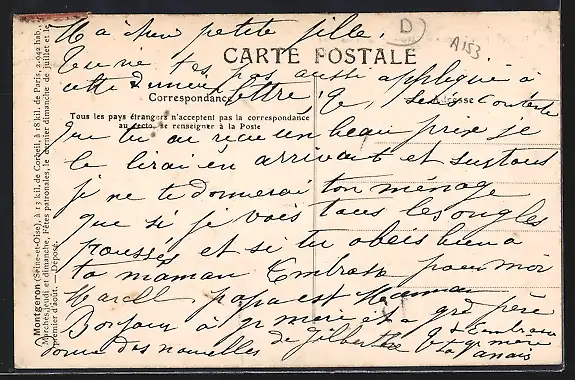 Ma chère petite fille.
D
A153
CARTE POSTALE
Tu ne t'es pas aussi appliquée à
cette lettre
Correspondance
Adresse
Tous les pays étrangers n'acceptent pas la correspondance
au recto, se renseigner à la Poste
que tu as reçu un beau prix je
le lirai en arrivant et surtout
je ne te donnerai ton ménage
que si je vois tous les ongles
poussés et si tu obéis bien à
ta maman Embrasse pour moi
Marcel, papa et Maman
Bonjour à gr mère et à grd père
donne des nouvelles de Gilberte
gr mère
Anaïs
Montgeron (Seine-et-Oise), à 13 kil. de Corbeil, à 18 kil. de Paris, 2.042 hab.
Marchés jeudi et dimanche, Fêtes patronales, le dernier dimanche de juillet et le
premier d'août. — Déposé.